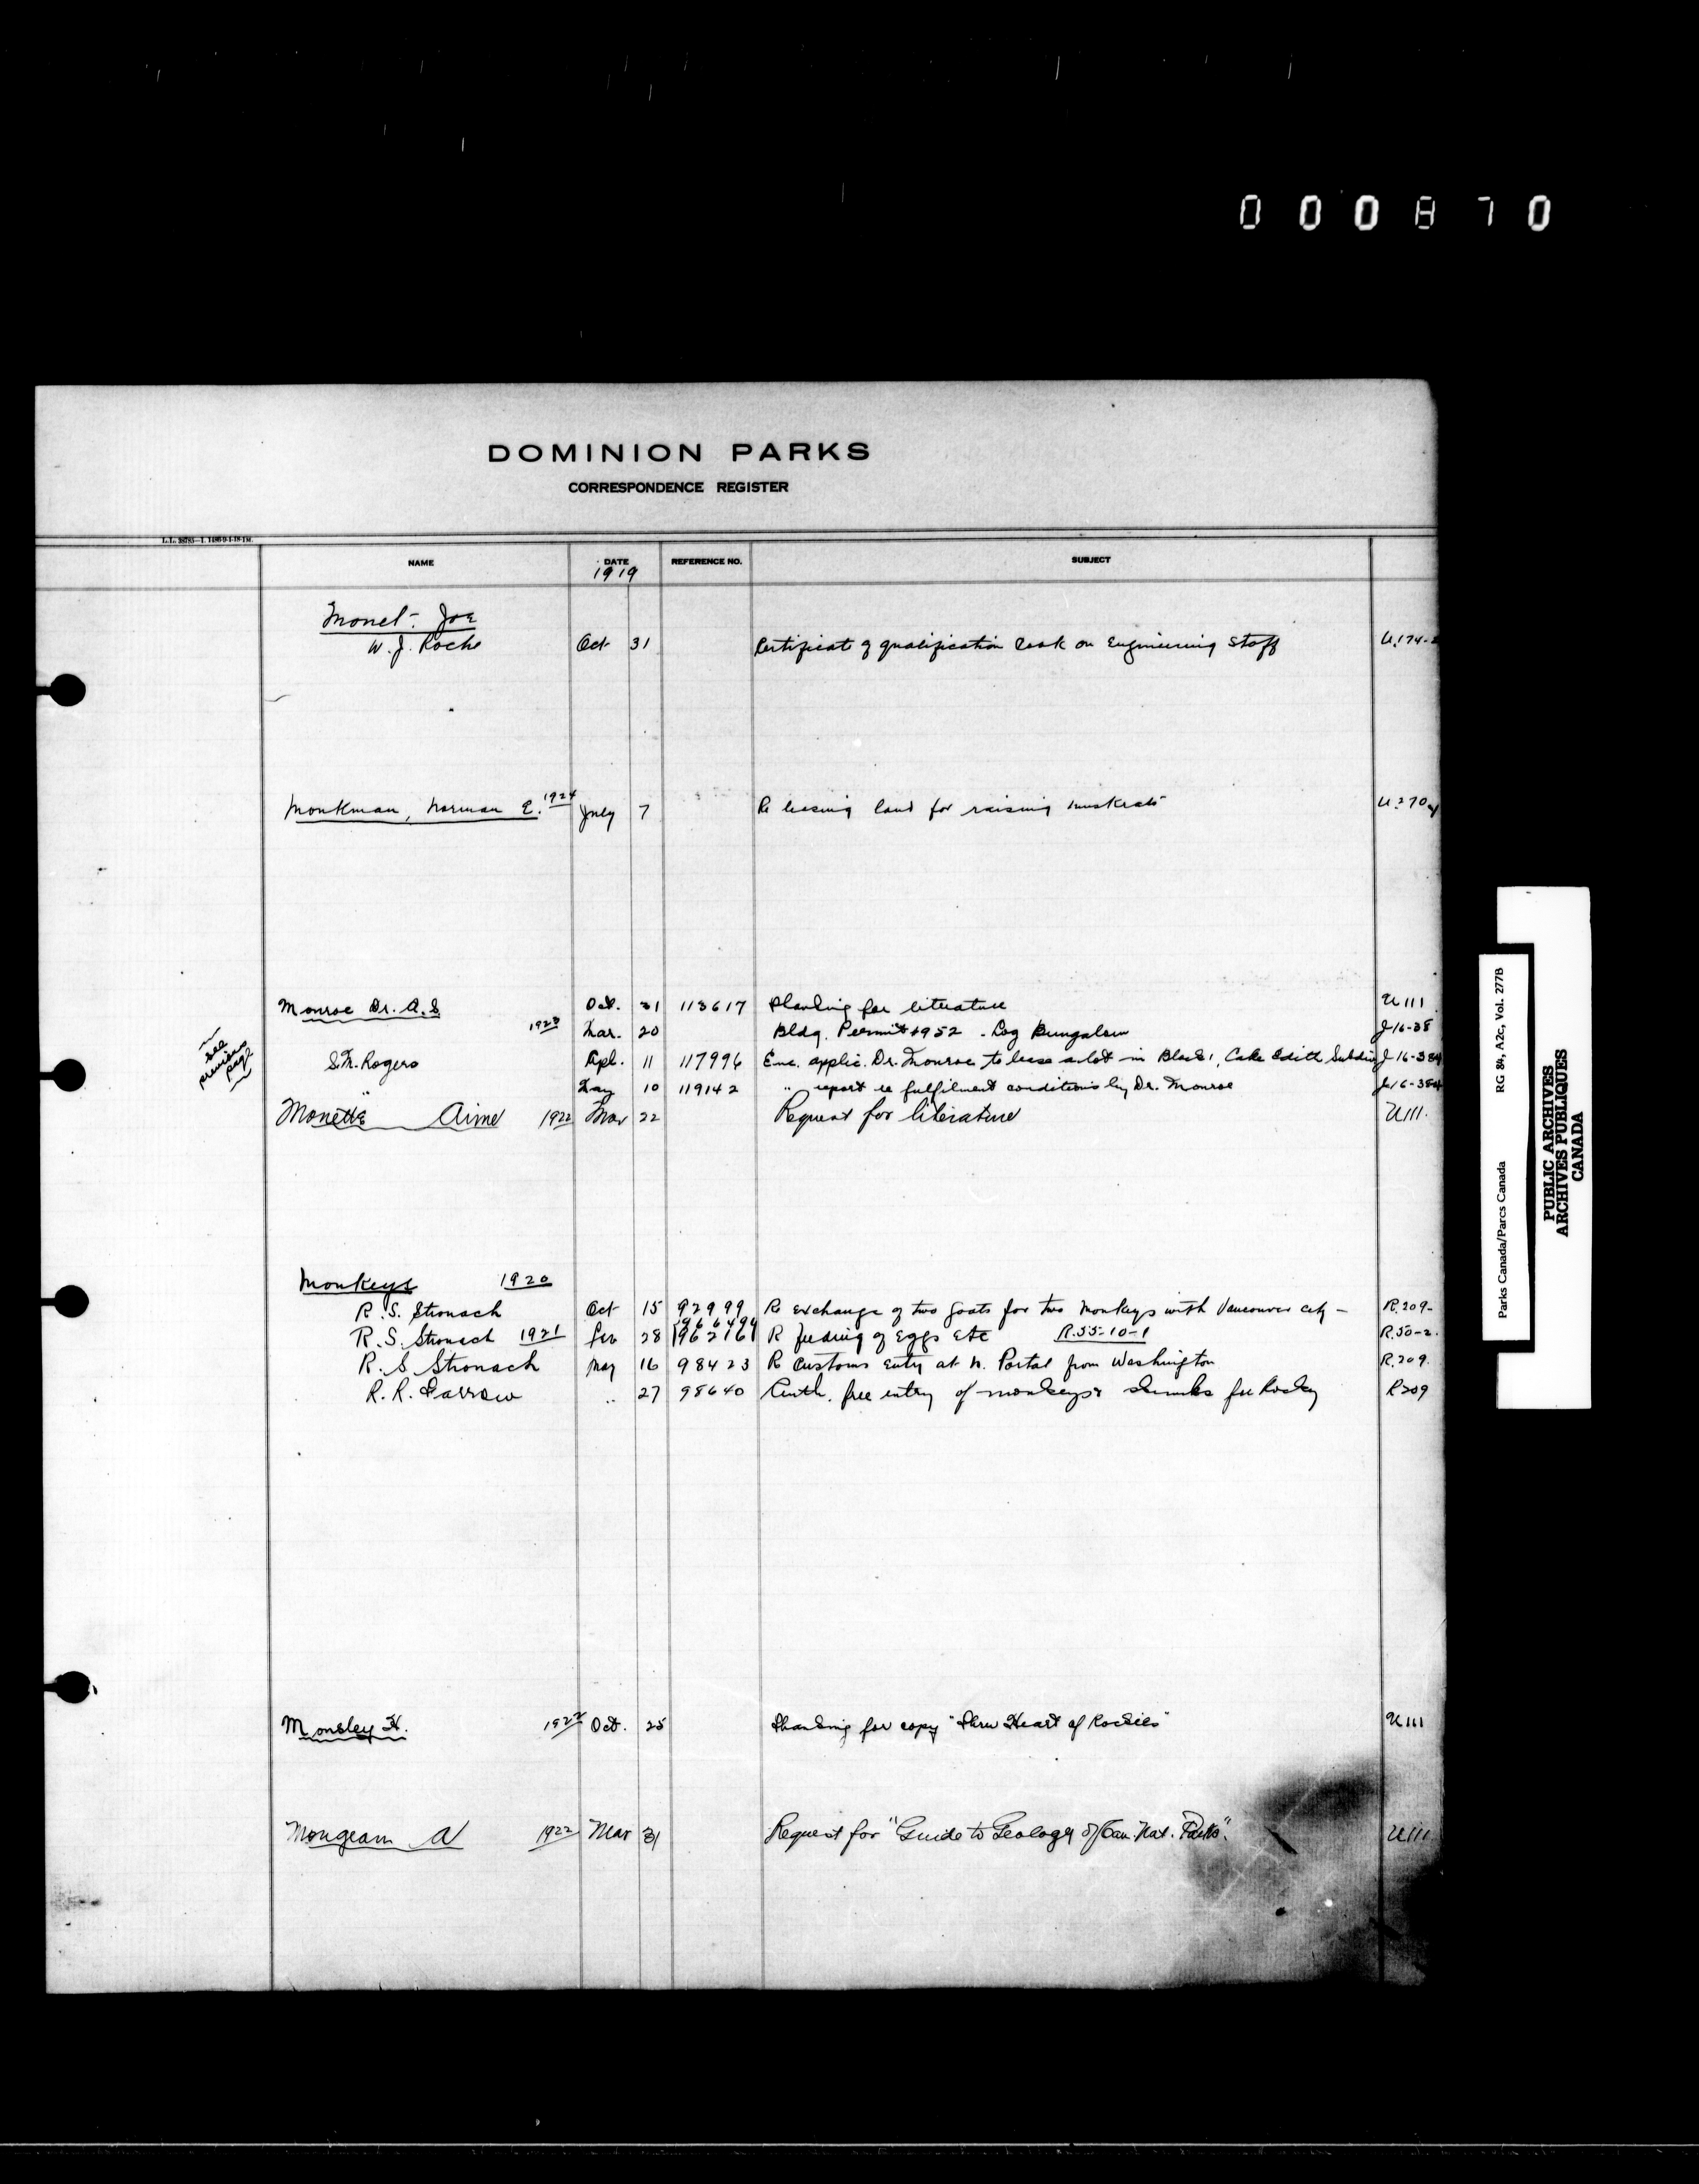 000870
DOMINION PARKS
CORRESPONDENCE REGISTER
NAME DATE REFERENCE NO. SUBJECT
1919
Monet- Joe
W. J. Roche Oct 31 Certificate of qualification Cook on Engineering Staff U.174-2
Monkman, Norman E. 1924 July 7 Re leasing land for raising muskrats U.270
Monroe Dr. A.S Oct. 31 113617 Thanking for literature U111
1923 Mar. 20 Bldg. Permit 4952 - Log Bungalow J16-38
see previous page
S.M. Rogers Apl. 11 117996 Enc. applic. Dr. Monroe to lease a lot in Block 1, Lake Edith Subdiv J-16-38
May 10 119142 " report re fulfilment conditions by Dr. Monroe
Monette Aime 1922 Mar 22 Request for literature U111.
Monkeys 1920
R. S. Stronach Oct 15 92999 Re exchange of two goats for two monkeys with Vancouver city - R.209-
R. S. Stronach 1921 Feb 28 96216 R feeding of Eggs etc R.55-10-1 R.50-2.
R. S Stronach May 16 98423 Re Customs entry at N. Portal from Washington R.209.
R. R. Farrow .. 27 98640 Auth. free entry of monkeys & skunks for Rocky R209
Monsley H. 1922 Oct. 25 Thanking for copy "Thru Heart of Rockies" U111
Mongeam A 1922 Mar 31 Request for "Guide to Geology of Can. Nat. Parks". U111
Parks Canada/Parcs Canada RG 84, A2c, Vol. 2778
PUBLIC ARCHIVES
ARCHIVES PUBLIQUES
CANADA